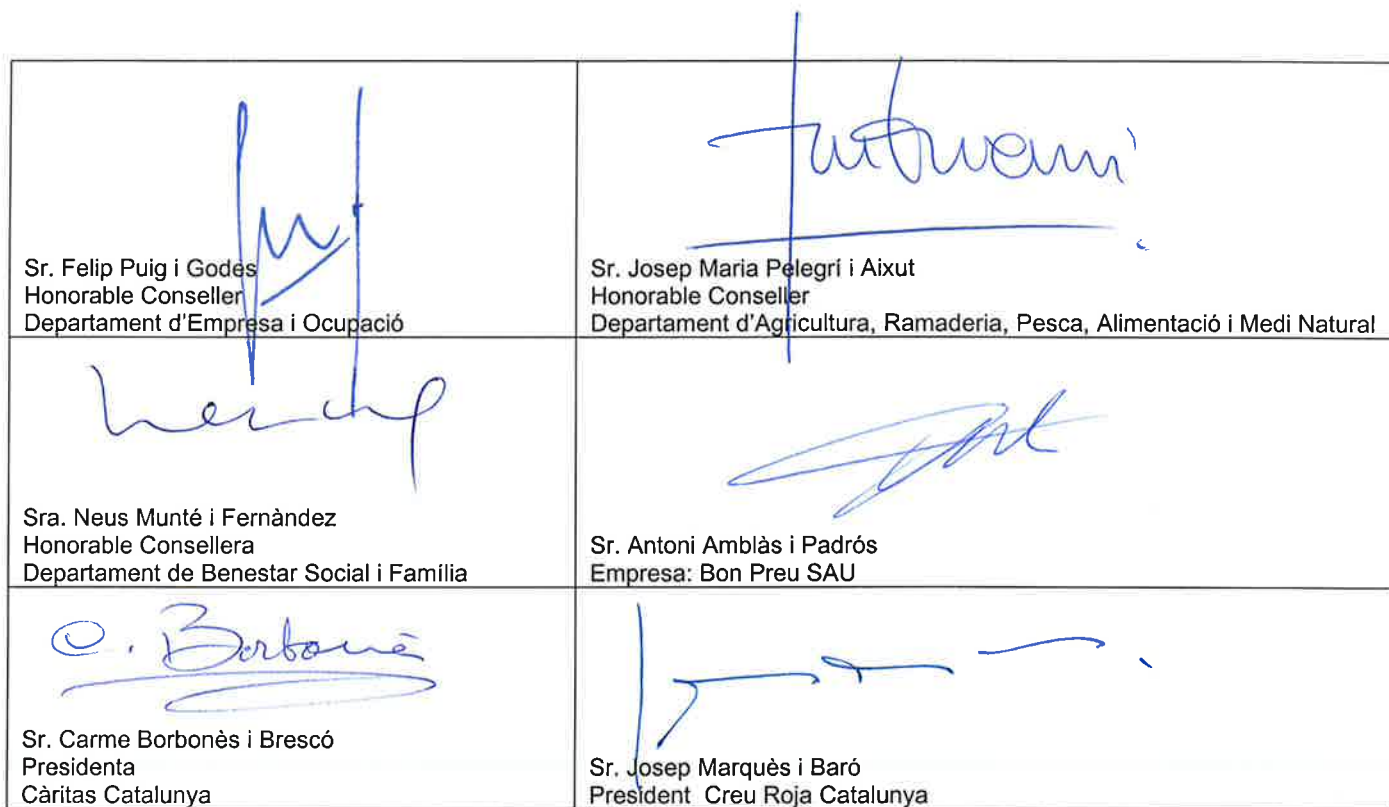 Sr. Felip Puig i Godes
Honorable Conseller
Departament d'Empresa i Ocupació
Sr. Josep Maria Pelegrí i Aixut
Honorable Conseller
Departament d'Agricultura, Ramaderia, Pesca, Alimentació i Medi Natural
Sra. Neus Munté i Fernàndez
Honorable Consellera
Departament de Benestar Social i Família
Sr. Antoni Amblàs i Padrós
Empresa: Bon Preu SAU
C. Borbonès
Sr. Carme Borbonès i Brescó
Presidenta
Càritas Catalunya
Sr. Josep Marquès i Baró
President Creu Roja Catalunya